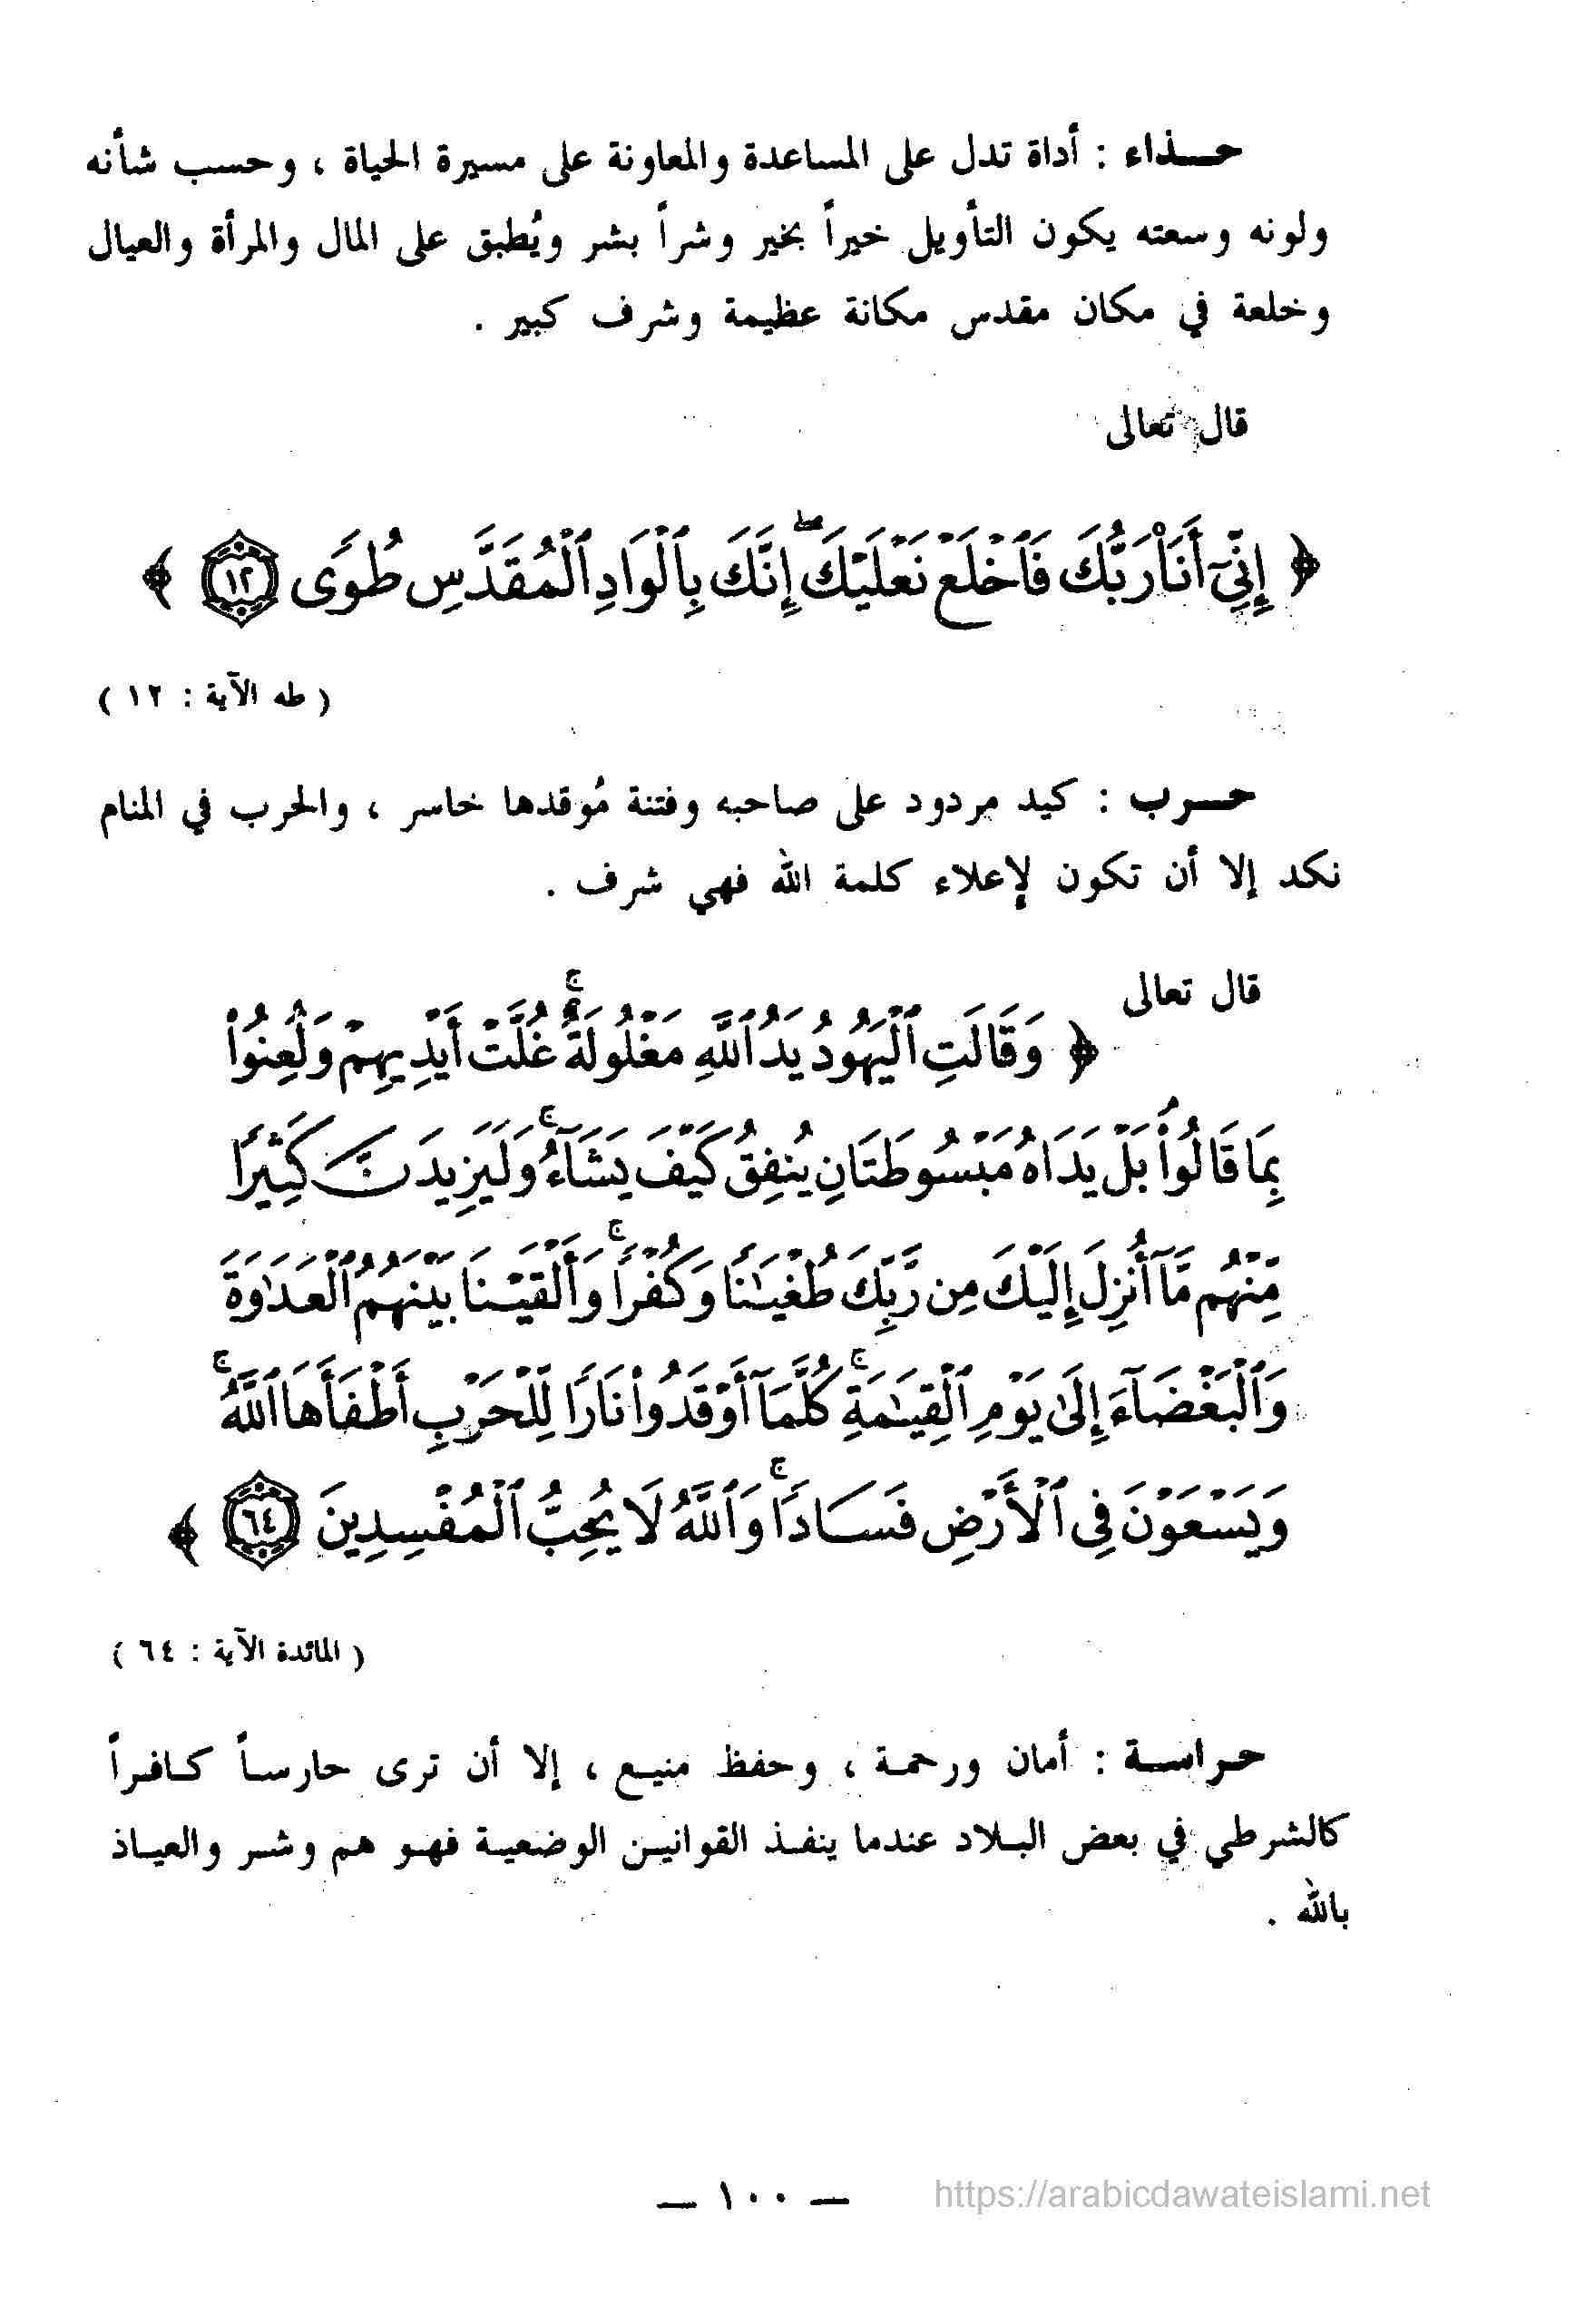 حـــذاء : أداة تدل على المساعدة والمعاونة على مسيرة الحياة ، وحسب شأنه
ولونه وسعته يكون التأويل خيراً بخير وشراً بشر ويُطبق على المال والمرأة والعيال
وخلعة في مكان مقدس مكانة عظيمة وشرف كبير .
قال تعالى
﴿ إِنِّىٓ أَنَا۠ رَبُّكَ فَٱخْلَعْ نَعْلَيْكَ ۖ إِنَّكَ بِٱلْوَادِ ٱلْمُقَدَّسِ طُوًى ١٢ ﴾
( طه الآية : ١٢ )
حـــرب : كيد مردود على صاحبه وفتنة مُوقدها خاسر ، والحرب في المنام
نكد إلا أن تكون لإعلاء كلمة الله فهي شرف .
قال تعالى
﴿ وَقَالَتِ ٱلْيَهُودُ يَدُ ٱللَّهِ مَغْلُولَةٌ ۚ غُلَّتْ أَيْدِيهِمْ وَلُعِنُوا۟
بِمَا قَالُوا۟ بَلْ يَدَاهُ مَبْسُوطَتَانِ يُنفِقُ كَيْفَ يَشَآءُ ۚ وَلَيَزِيدَنَّ كَثِيرًا
مِّنْهُم مَّآ أُنزِلَ إِلَيْكَ مِن رَّبِّكَ طُغْيَـٰنًا وَكُفْرًا ۚ وَأَلْقَيْنَا بَيْنَهُمُ ٱلْعَدَٰوَةَ
وَٱلْبَغْضَآءَ إِلَىٰ يَوْمِ ٱلْقِيَـٰمَةِ ۚ كُلَّمَآ أَوْقَدُوا۟ نَارًا لِّلْحَرْبِ أَطْفَأَهَا ٱللَّهُ ۚ
وَيَسْعَوْنَ فِى ٱلْأَرْضِ فَسَادًا ۚ وَٱللَّهُ لَا يُحِبُّ ٱلْمُفْسِدِينَ ٦٤ ﴾
( المائدة الآية : ٦٤ )
حـراسـة : أمان ورحمـة ، وحفظ منيـع ، إلا أن ترى حارسـاً كـافـراً
كالشرطي في بعض البـلاد عندما ينفـذ القوانيـن الوضعيـة فهـو هم وشـر والعيـاذ
بالله .
— ١٠٠ —
https://arabicdawateislami.net